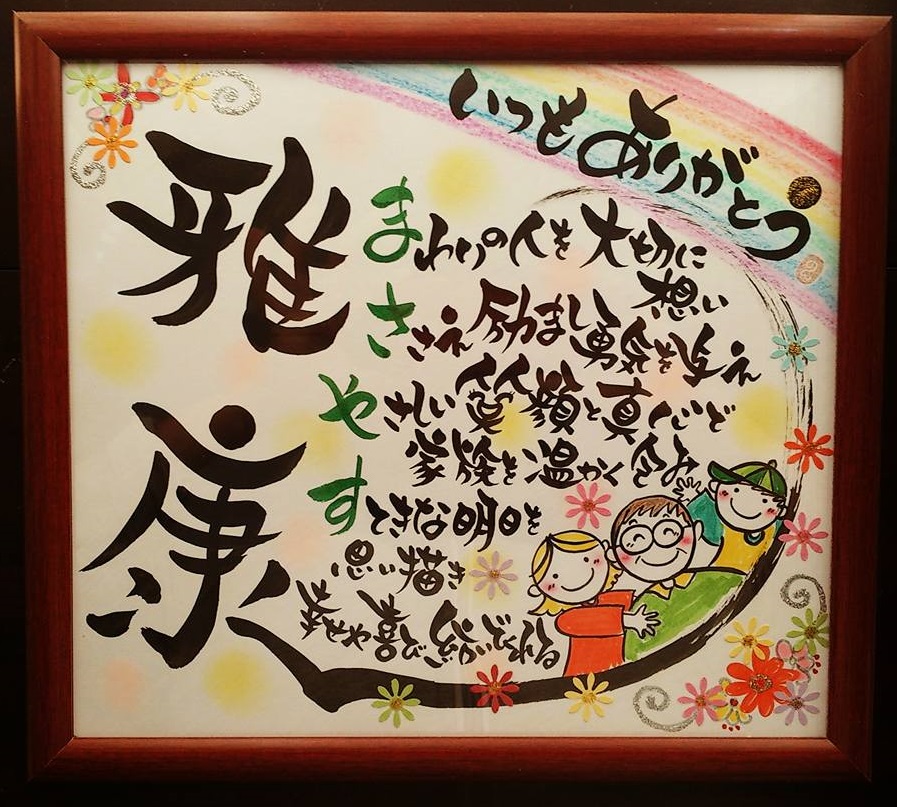 いつもありがとう
雅康
まわりの人を大切に
想い
ささえ励まし勇気を与え
やさしい笑顔と真心で
家族を温かく包み
すてきな明日を
思い描き
幸せや喜び くれる